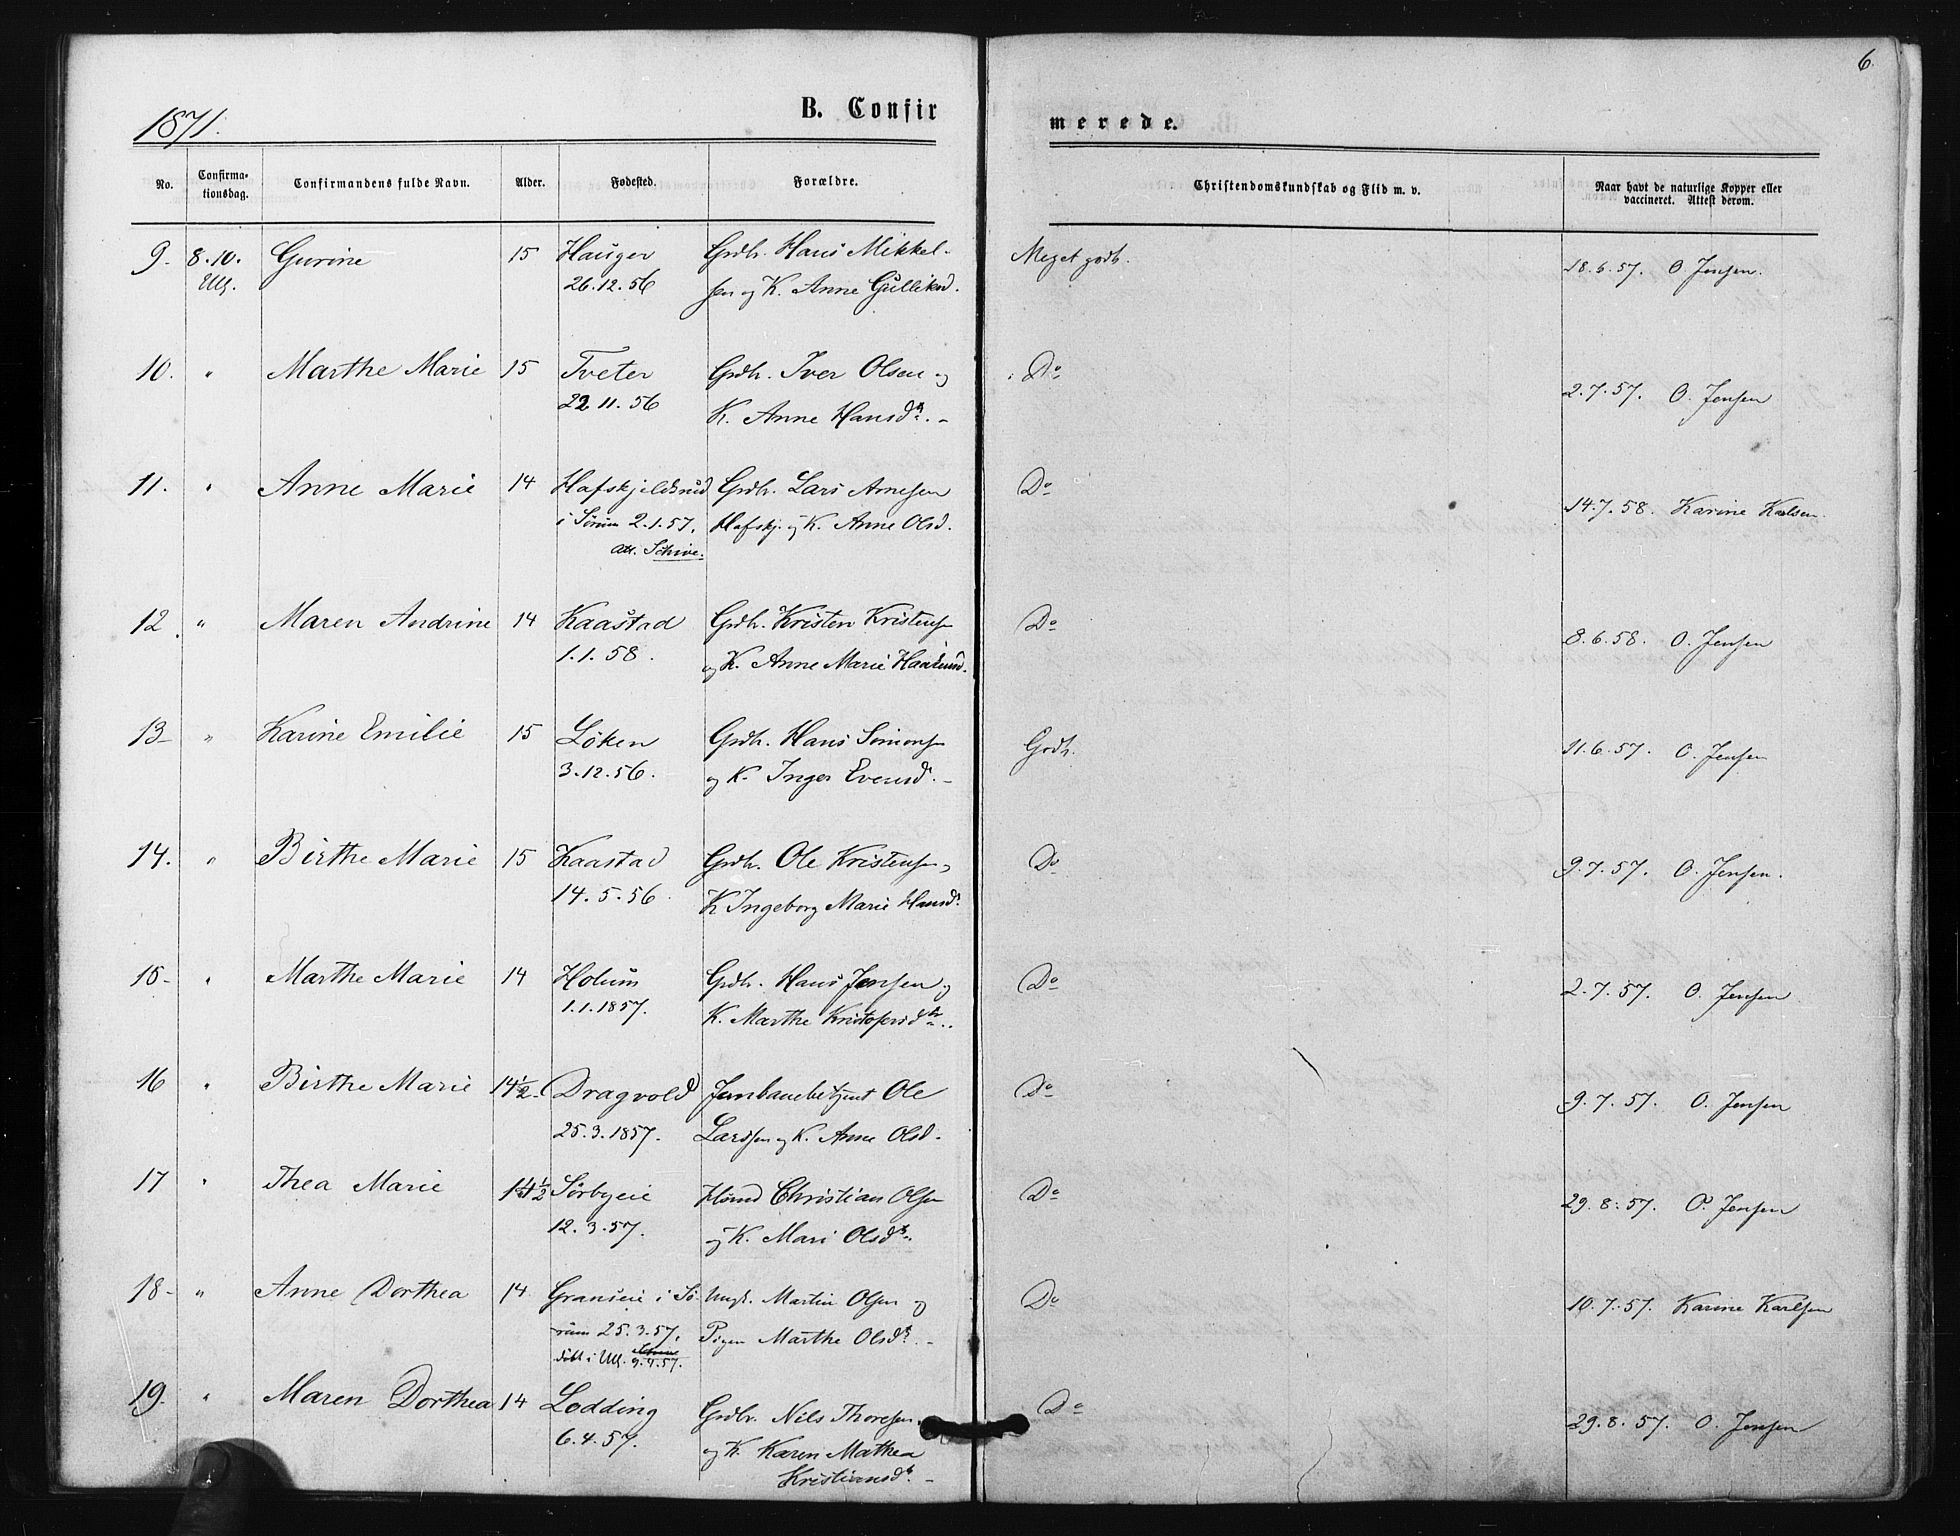 6.
1871.
B. Confir
merede.
No. Confirma- Confirmandens fulde Navn. Alder. Fødested. Forældre. Christendomskundskab og Flid m. v. Naar havt de naturlige Kopper eller
tionsdag. vaccineret. Attest derom.
9. 8.10. Gurine 15 Hauger Grdbr. Hans Mikkel- Meget godt. 18.6.57. O Jensen.
Ull. 26.12.56 sen og K. Anne Gulliksd.
10. " Marthe Marie 15 Tveter Grdbr. Iver Olsen og Do 2.7.57. O. Jensen
22.11.56 K. Anne Hansdr. -
11. " Anne Marie 14 Hafskjeldsrud Grdbr. Lars Arnesen Do 14.7.58. Karine Karlsen
i Sørum 2.1.57. Hafskj. og K. Anne Olsd.
att. Schive.
12. " Maren Andrine 14 Kaastad Grdbr. Kristen Kristensen Do 8.6.58. O. Jensen
1.1.58. og K. Anne Marie
13- " Karine Emilie 15 Løken Grdbr. Hans Simonsen Godt. 11.6.57. O. Jensen
3.12.56. og K. Inger Evensd. -
14. " Birthe Marie 15 Kaastad Grdbr. Ole Kristensen, Do 9.7.57. O. Jensen.
14.5.56. K Ingeborg Marie Hansdr
15- " Marthe Marie 14 Holum Grdbr. Hans Jensen og Do 2.7.57. O. Jensen
1.1.1857. K. Marthe Kristofersdtr..
16 " Birthe Marie 14½ Dragvold Jernbanebetjent Ole Do 9.7.57. O. Jensen
25.3.1857. Larssen og K. Anne Olsd.
17 " Thea Marie 14½ Sørbyeie Husmd Christian Olsen Do 29.8.57. O. Jensen
12.3.57. og K. Mari Olsdtr.
18- " Anne Dorthea 14 Granseie i Sø- Ungk. Martin Olsen og Do 10.7.57. Karine Karlsen
rum 25.3.57. Pigen Marthe Olsdr. -
døbt i Ull. 9.4.57.
19. " Maren Dorthea 14 Lodding Grdbr. Nils Thoresen Do 29.8.57. O. Jensen
6.4.57. og K. Karen Mathea
Kristiansdr. -